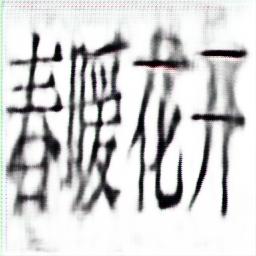 春暖花开